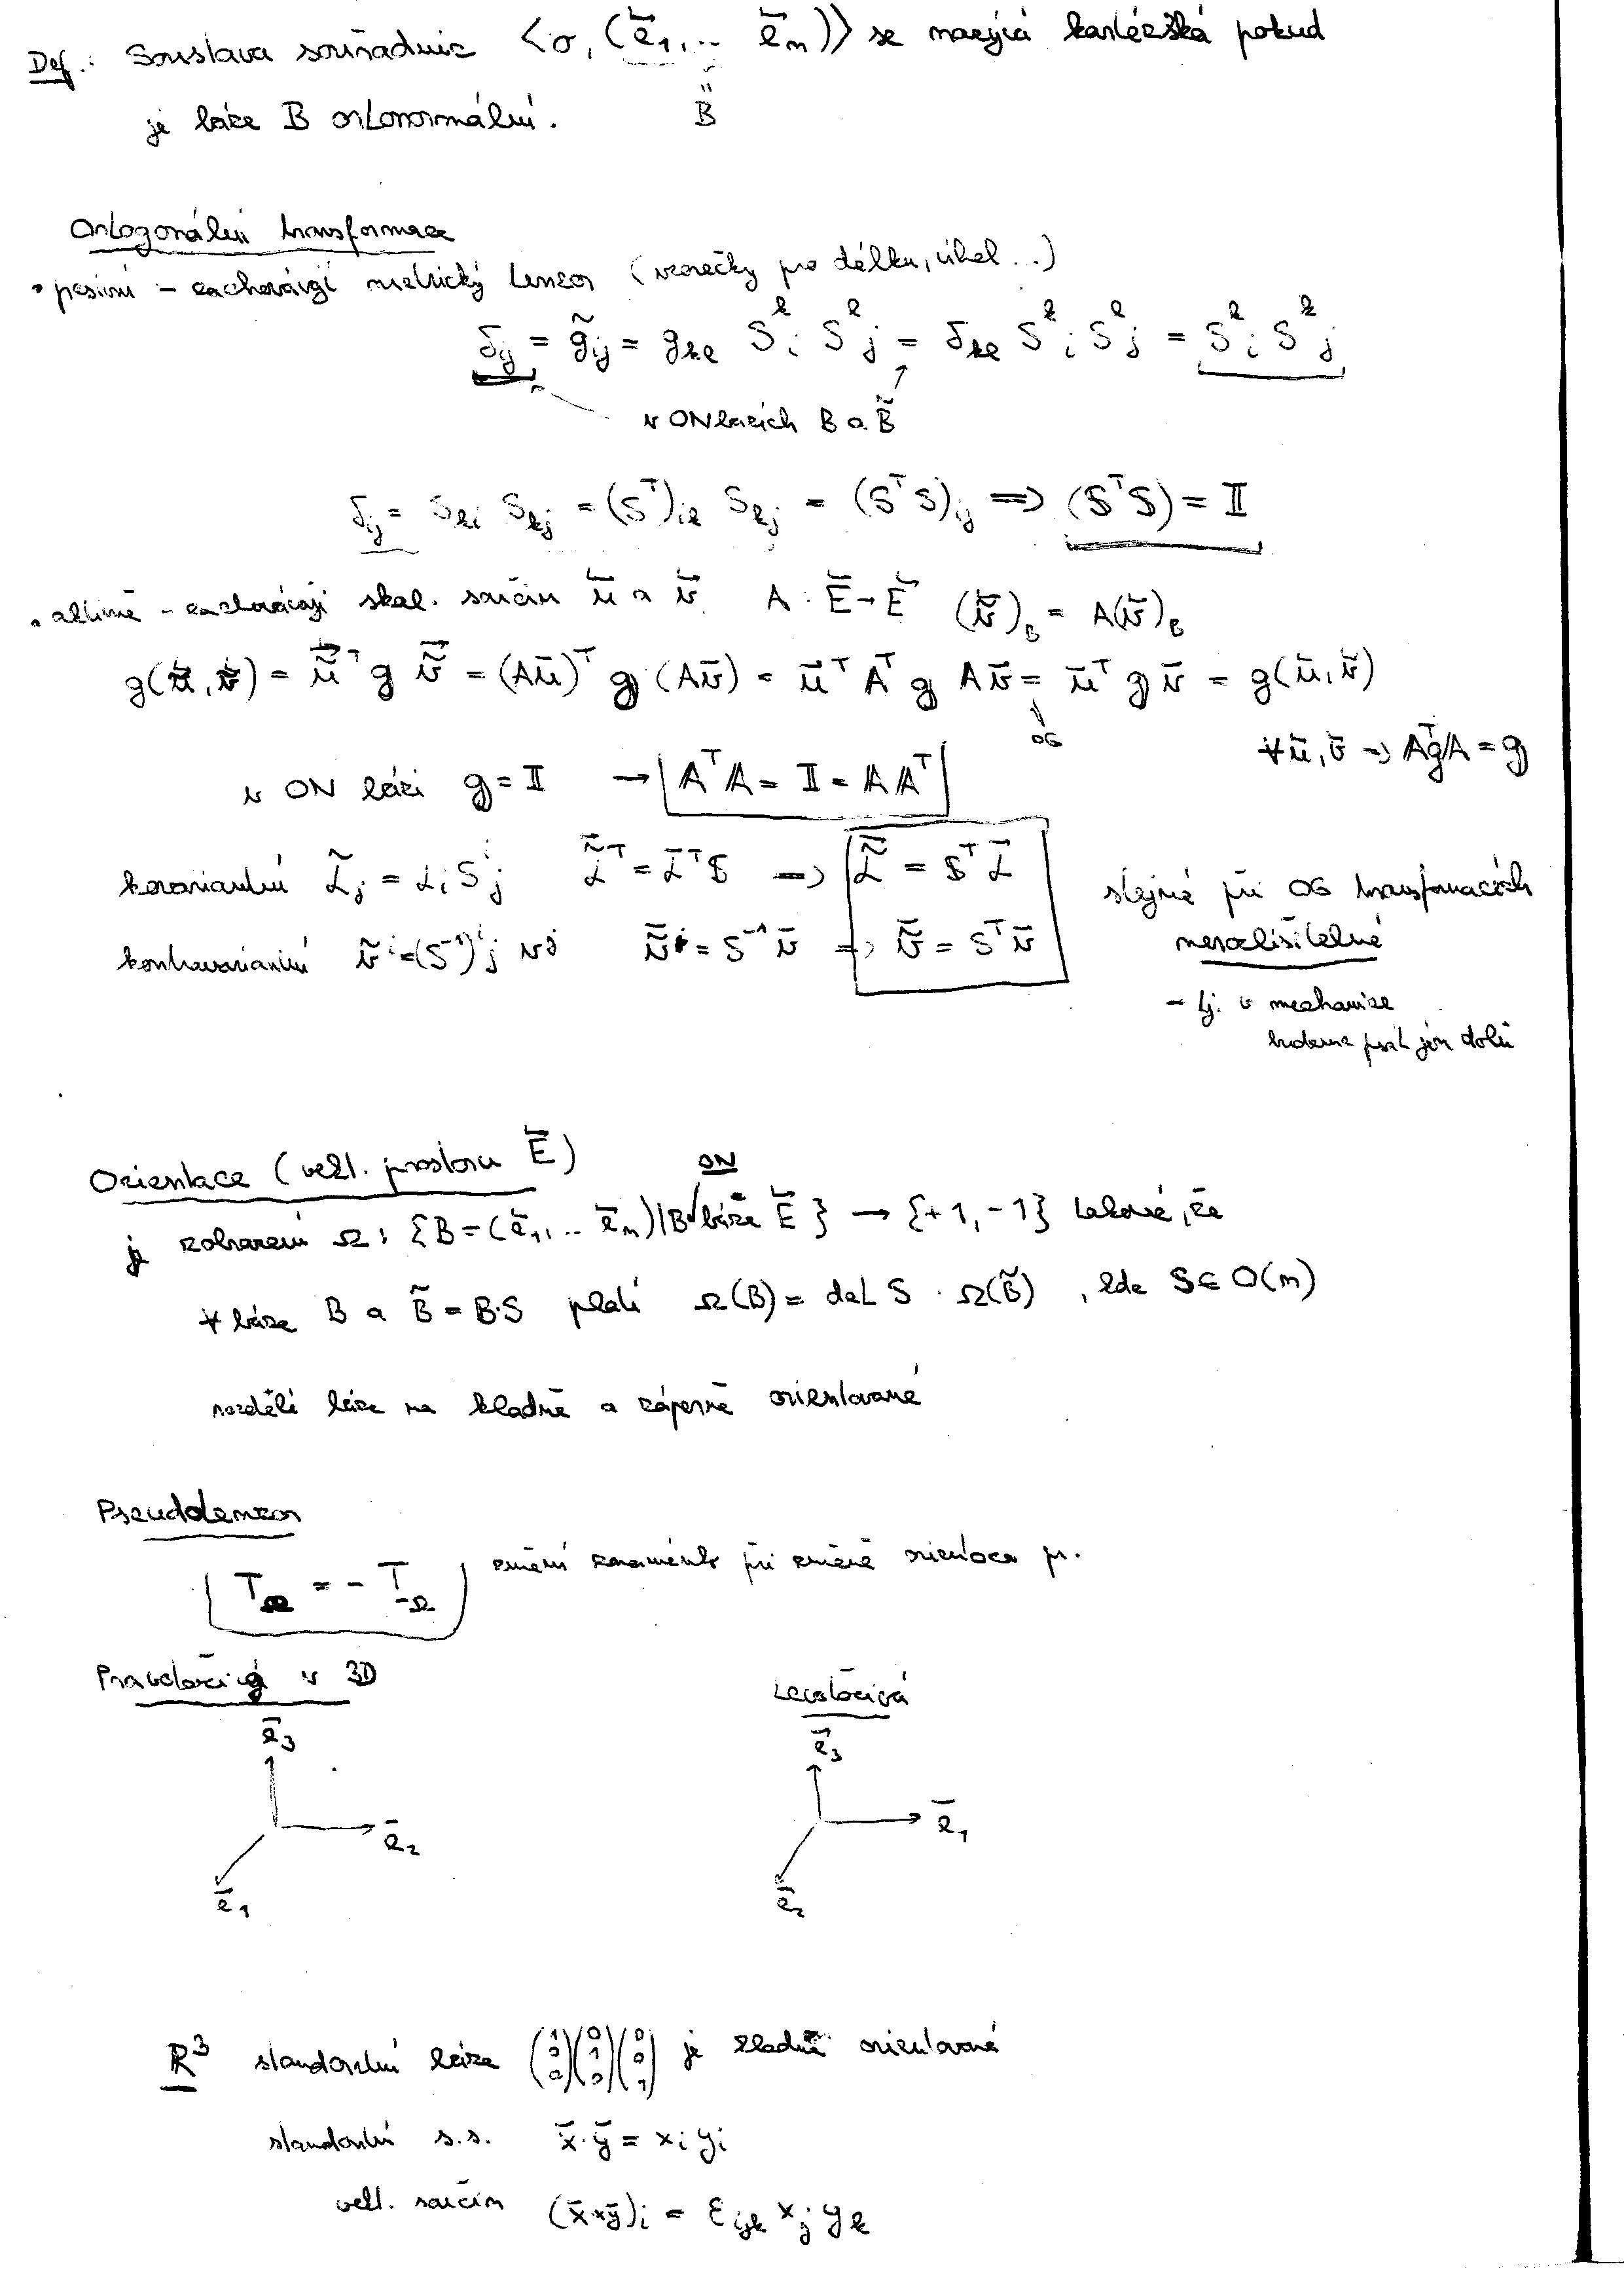 Def.: Soustava souřadnic <σ, (e⃗₁, ... e⃗ₙ)> se nazývá kartézská pokud
= B
je báze B ortonormální.
Ortogonální transformace
• pasivní – zachovávají metrický tenzor (vzorečky pro délku, úhel ...)
δᵢⱼ = g̃ᵢⱼ = gₖₗ Sᵏᵢ Sˡⱼ = δₖₗ Sᵏᵢ Sˡⱼ = Sᵏᵢ Sᵏⱼ
v ON bázích B a B̃
δᵢⱼ = Sₖᵢ Sₖⱼ = (Sᵀ)ᵢₖ Sₖⱼ = (SᵀS)ᵢⱼ ⟹ (SᵀS) = 𝕀
• aktivně – zachovávají skal. součin u⃗ a v⃗ A : E⃗ → E⃗ (ṽ⃗)_B = A(v⃗)_B
g(ũ⃗, ṽ⃗) = ũ⃗ᵀ g ṽ⃗ = (Au⃗)ᵀ g (Av⃗) = u⃗ᵀ Aᵀ g A v⃗ = u⃗ᵀ g v⃗ = g(u⃗, v⃗)
OG
∀ u⃗, v⃗ ⇒ AᵀgA = g
v ON bázi g = 𝕀 → AᵀA = 𝕀 = AAᵀ
kovariantní α̃ⱼ = αᵢ Sⁱⱼ α̃⃗ᵀ = α⃗ᵀS ⟹ α̃⃗ = Sᵀ α⃗
stejné při OG transformacích
kontravariantní ṽⁱ = (S⁻¹)ⁱⱼ vʲ ṽ⃗ = S⁻¹ v⃗ ⟹ ṽ⃗ = Sᵀ v⃗
nerozlišitelné
– tj. v mechanice
budeme psát jen dolů
Orientace (vekt. prostoru E⃗)
je zobrazení Ω : {B = (e⃗₁, ... e⃗ₙ) | B ON báze E⃗} → {+1, -1} takové, že
∀ báze B a B̃ = B·S platí Ω(B) = det S · Ω(B̃), kde S ∈ O(n)
rozdělí báze na kladně a záporně orientované
Pseudotenzor
T_Ω = – T_-Ω změní znaménko při změně orientace pr.
Pravotočivá v 3D
Levotočivá
e⃗₃
e⃗₂
e⃗₁
e⃗₃
e⃗₁
e⃗₂
R³ standardní báze (1 0 0) (0 1 0) (0 0 1) je kladně orientovaná
standardní s.s. x⃗·y⃗ = xᵢ yᵢ
vekt. součin (x⃗×y⃗)ᵢ = εᵢⱼₖ xⱼ yₖ